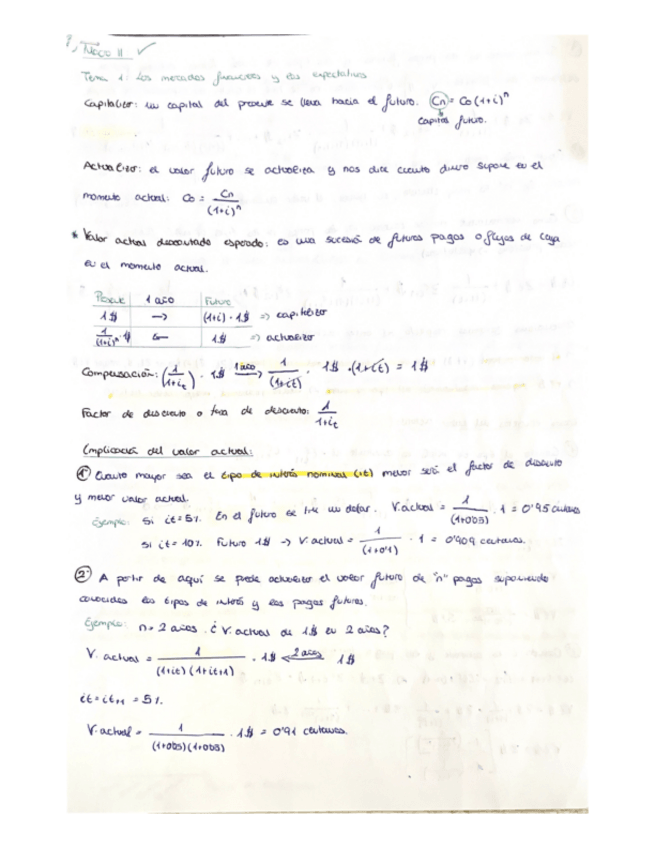 Macro II ✓
Tema 1: Los mercados financieros y las expectativas
Capitalizo: un capital del presente se lleva hacia el futuro. Cn = Co (1+i)^n
capital futuro.
Actualizo: el valor futuro se actualiza y nos dice cuanto dinero supone en el
momento actual: Co = Cn / (1+i)^n
* Valor actual descontado esperado: es una sucesión de futuros pagos o flujos de caja
en el momento actual.
Presente | 1 año | Futuro
1$ | → | (1+i) · 1$ ⇒ capitalizo
1/(1+i)^n · $ | ← | 1$ ⇒ actualizo
Compensación: (1/(1+it)) · 1$ 1 año → 1/(1+it) · 1$ · (1+it) = 1$
Factor de descuento o tasa de descuento: 1/(1+it)
Implicación del valor actual:
1º Cuanto mayor sea el tipo de interés nominal (it) menor será el factor de descuento
y menor valor actual.
Ejemplo: Si it = 5%. En el futuro se un dolar. V.actual = 1/(1+0'05) · 1 = 0'95 centavos
Si it = 10%. Futuro 1$ → V.actual = 1/(1+0'1) · 1 = 0'909 centavos.
2º A partir de aquí se puede actualizar el valor futuro de "n" pagos suponiendo
conocidos los tipos de interés y los pagos futuros.
Ejemplo: n = 2 años. ¿V.actual de 1$ en 2 años?
V. actual = 1/((1+it)(1+it+1)) · 1$ ← 2 años 1$
it = it+1 = 5%.
V.actual = 1/((1+0'05)(1+0'05)) · 1$ = 0'91 centavos.